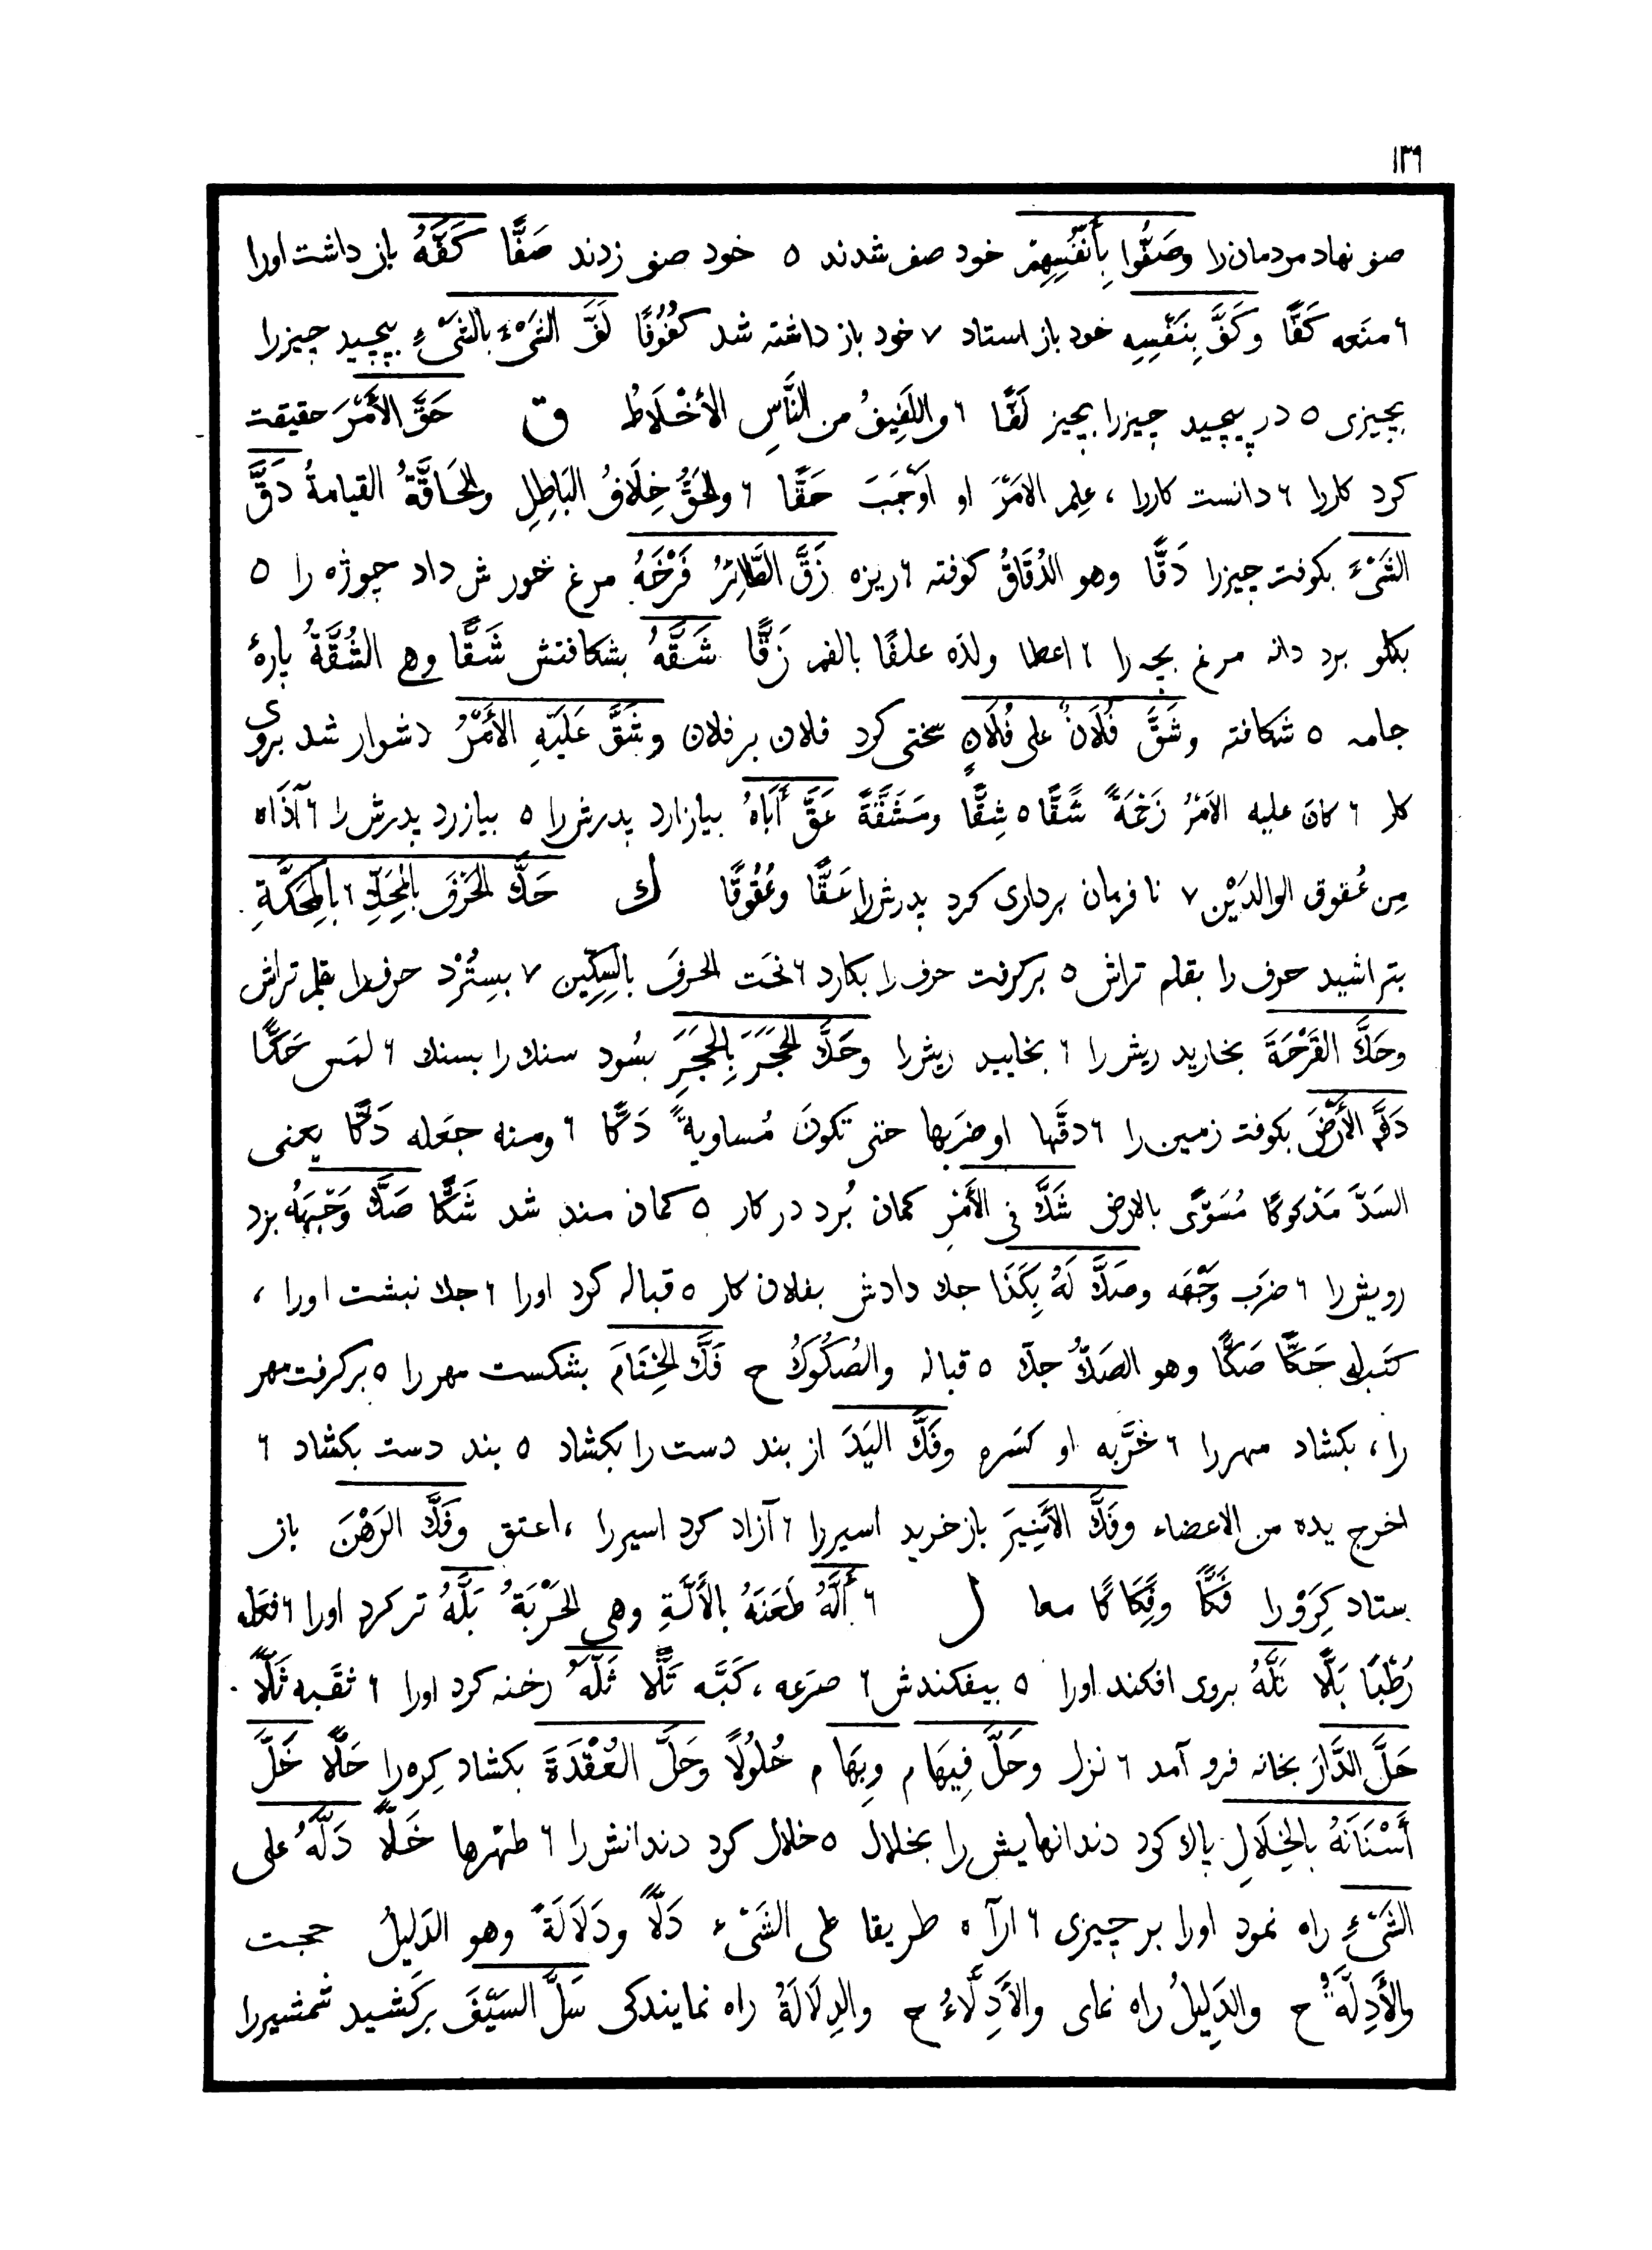 ١٣٩
صف نهاد مردمان را وصَفُّوا بِأَنْفُسِهِمْ خود صف شدند ٥ خود صف زدند صَفًّا كَفَّهُ باز داشت اورا
٦ منَعه كَفًّا وكَفَّ بِنَفْسِهِ خود باز استاد ٧ خود باز داشته شد كُفُوفًا لَفَّ الشَىْءَ بالشَىْءِ بپچيد چيزرا
بچيزى ٥ در پيچيد چيزرا بچيز لَفًّا ٦ واللَفِيفُ من النَّاسِ الأخْلَاطُ ق حَقَّ الأَمْرَ حقيقت
كرد كاررا ٦ دانست كاررا ، عِلم الامْرَ او أوْجَبَ حَقًّا ٦ والحَقُّ خِلَافُ البَاطِلِ والحَاقَّةُ القيامةُ دَقَّ
الشَىْءَ بكوفت چيزرا دَقًّا وهو الدُقَاقُ كوفته ٦ ريزه زَقَّ الطَائِرُ فَرْخَهُ مرغ خورش داد چوژه را ٥
بكلو برد دانه مرغ بچه را ٦ اعطا ولدَه علفًا بالفم زَقًّا شَقَّهُ بشكافتش شَقًّا وهى الشُقَّةُ پارهٔ
جامه ٥ شكافته وشَقَّ فُلَانٌ على فُلَانٍ سختى كرد فلان بر فلان وشَقَّ عَلَيْهِ الأَمْرُ دشوار شد بروى
كار ٦ كان عليه الامْرُ زَحْمَةً شَقًّا ٥ شِقًّا ومَشَقَّةً عَقَّ أَبَاهُ بيازارد پدرش را ٥ بيازرد پدرش را ٦ آذَاه
مِن عُقوق الوالدَيْن ٧ نا فرمان بردارى كرد پدرش را عَقًّا وعُقُوقًا ك حَكَّ الحَرْفَ بالمِحَكِّ ٦ بالمِحَكَّةِ
بتراشيد حرف را بقلم تراش ٥ بركرفت حرف را بكارد ٦ نحَت الحرفَ بالسِكِّين ٧ بِسِتُرْد حرف را بقلم تراش
وحَكَّ القَرْحَةَ بخاريد ريش را ٦ بخاييد ريش را وحَكَّ الحَجَرَ بِالحَجَرِ بسُود سنك را بسنك ٦ لمَس حَكًّا
دَكَّ الأَرْضَ بكوفت زمين را ٦ دقَّها او ضرَبها حتى تكونَ مُساويةً دَكًّا ٦ ومنه جعَله دَكًّا يعنى
السَدَّ مَدْكوكًا مُسَوًّى بالارض شَكَّ فى الأَمْرِ كمان بُرد در كار ٥ كمان مند شد شَكًّا صَكَّ وَجْهَهُ بزد
رويش را ٦ ضرَب وَجْهَه وصَكَّ لَهُ بِكَذَا چك دادش بفلان كار ٥ قباله كرد اورا ٦ چك نبشت اورا ،
كتَب له چَكًّا صَكًّا وهو الصَكُّ چكّ ٥ قباله والصُكُوكُ ح فَكَّ الخِتَامَ بشكست مهر را ٥ بركرفت مهر
را ، بكشاد مهر را ٦ خرَّبه او كسَره وفَكَّ اليَدَ از بند دست را بكشاد ٥ بند دست بكشاد ٦
اخرج يده من الاعضاء وفَكَّ الأَسِيرَ باز خريد اسير را ٦ آزاد كرد اسير را ، اعتق وفَكَّ الرَهْنَ باز
ستاد كِرَوْ را فَكًّا وفِكَاكًا معا ل ٦ أَلَّهُ طَعَنَهُ بِالأَلَّةِ وهى الحَرْبَةُ بَلَّهُ تر كرد اورا ٦ فعَله
رَطْبًا بَلًّا تَلَّهُ بروى افكند اورا ٥ بيفكندش ٦ صرَعه ، كَبَّه تَلًّا ثَلَّهُ رخنه كرد اورا ٦ ثقَبه ثَلًّا
حَلَّ الدَّارَ بخانه فرو آمد ٦ نزل وحَلَّ فِيهَا م وبِهَا م حُلُولًا وحَلَّ العُقْدَةَ بكشاد كِره را حَلًّا خَلَّ
أَسْنَانَهُ بِالخِلَالِ پاك كرد دندانهايش را بخلال ٥ خلال كرد دندانش را ٦ طهّرها خَلًّا دَلَّهُ على
الشَىْءِ راه نمود اورا بر چيزى ٦ ارآه طريقا على الشَىْء دَلًّا ودَلَالَةً وهو الدَلِيلُ حجت
والأَدِلَّةُ ح والدَلِيلُ راه نماى والأَدِلَّاءُ ح والدِلَالَةُ راه نمايندكى سَلَّ السَيْفَ بركشيد شمشيررا